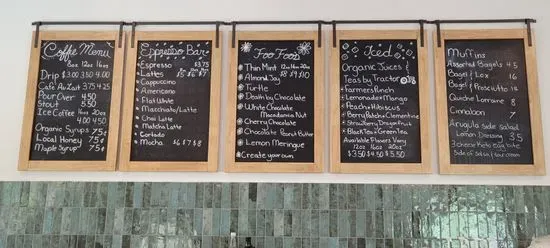 Coffee Menu
8oz 12oz 16oz
Drip $3.00 3.50 4.00
Café Au Lait 3.75 4.25
Pour Over 4.50
Stout 5.50
Ice Coffee 16oz 20oz
4.00 4.50
Organic Syrups .75¢
Local Honey .75¢
Maple Syrup .75¢
Espresso Bar
Espresso $3.75
Lattes $5 $6 $7
Cappuccino
Americano
Flat White
Macchiato/Latte
Chai Latte
Matcha Latte
Cortado
Mocha $6 $7 $8
Foo Foos
Thin Mint 12oz 16oz 20oz
Almond Joy $8 $9 $10
Turtle
Death by Chocolate
White Chocolate
Macadamia Nut
Cherry Chocolate
Chocolate Peanut Butter
Lemon Meringue
Create your own
Iced
Organic Juices &
Teas by Tractor
Farmers Punch
Lemonade Mango
Peach Hibiscus
Berry Patch Clementine
Strawberry Dragonfruit
Black Tea Green Tea
Available Flavors Vary
12oz 16oz 20oz
$3.50 $4.50 $5.50
Muffins
Assorted Bagels 4.5
Bagel & Lox 16
Bagel & Prosciutto 15
Quiche Lorraine 8
Cinnamon 7
Arugula side salad
Lemon Dressing 3.5
3 cheese Keto egg bite
Side of salsa/sour cream